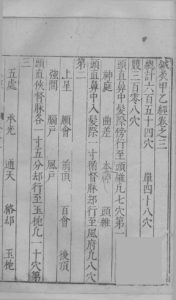 鍼灸甲乙經卷之三
總計六百五十四穴　單四十八穴
雙三百零八穴
頭直鼻中髮際傍行至頭維凡七穴第一
神庭　曲差　本神　頭維
頭直鼻中入髮際一寸循督脉却行至風府凡八穴
第二
上星　顖會　前頂　百會　後頂
強間　腦戶　風戶
頭直俠督脉各一寸五分却行至玉枕凡一十穴第
三
五處　承光　通天　絡却　玉枕